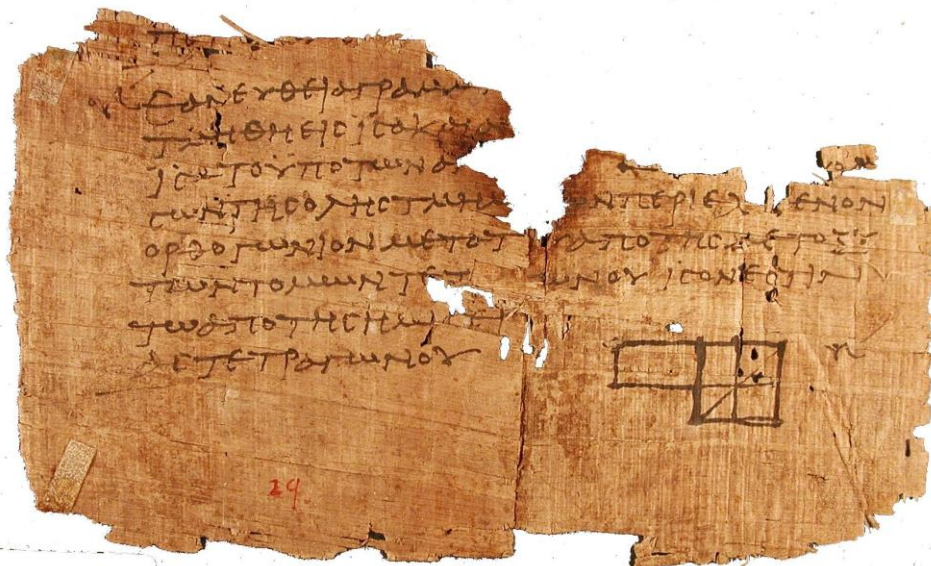 ΕΑΝ ΕΥΘΕΙΑ ΓΡΑΜΜ
ΤΜΗΘΗ ΕΙϹ ΙϹΑ ΚΑΙ Α
ΙϹΑ ΤΟ ΥΠΟ ΤΩΝ Α
ϹΩΝ ΤΗϹ ΟΛΗϹ ΤΜΗΜ ΩΝ ΠΕΡΙΕΧ ΕΝΟΝ
ΟΡΘΟΓΩΝΙΟΝ ΜΕΤΑ Τ Υ ΑΠΟ ΤΗϹ ΜΕΤΟΞΥ
ΤΩΝ ΤΟΜΩΝ ΤΕΤ ΩΝΟΥ ΙϹΟΝ ΕϹΤΙΝ
ΤΩ ΑΠΟ ΤΗϹ ΗΜΙϹΕΙ
ΑϹ ΤΕΤΡΑΓΩΝΟΥ
29.